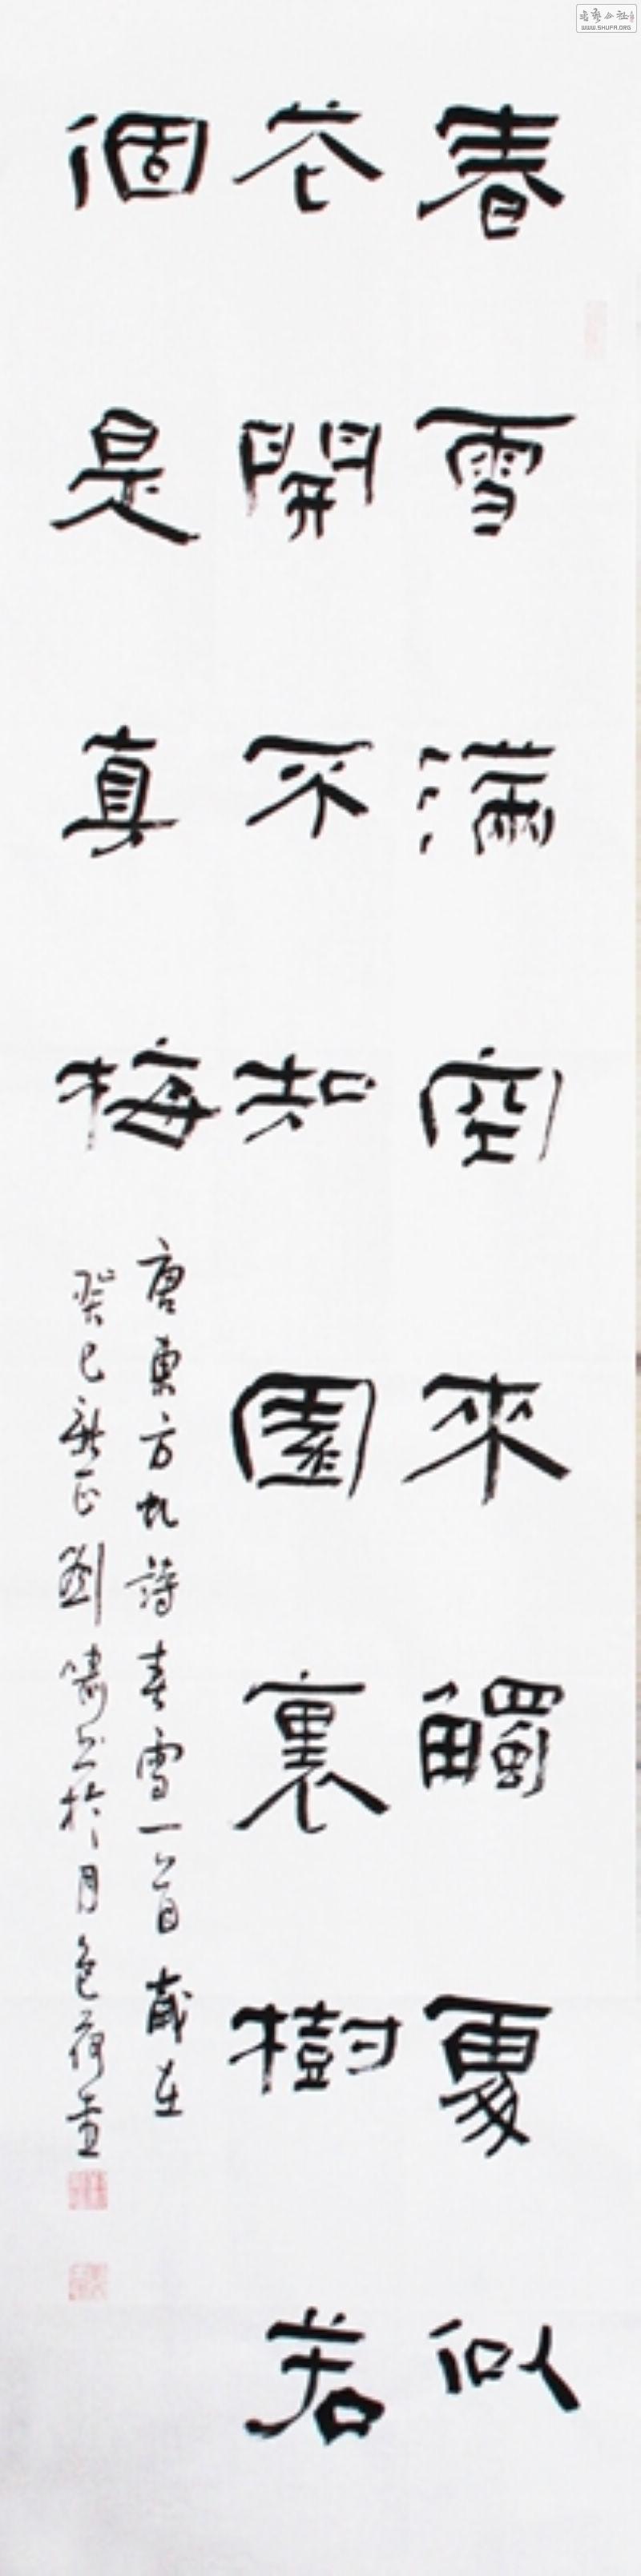 春雪滿空來觸處似
花開不知園裏樹若
個是真梅
唐東方虬詩春雪一首歲在
癸巳新正劉嘯書於月色荷
WWW.SHUFR.ORG